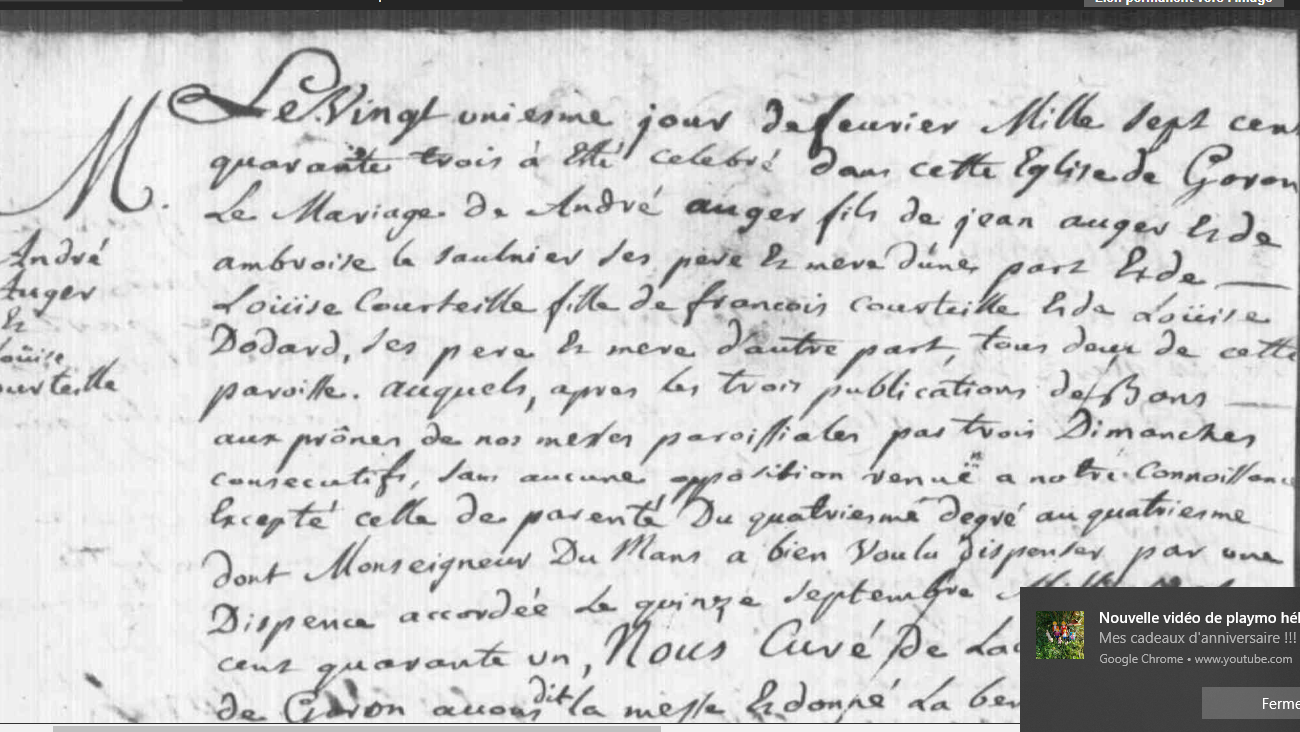 Lien permanent vers l'image
Le Vingt uniesme jour de feurier Mille sept cent
quarante trois à Etté celebré dans cette Eglise de Goron
M.
Le Mariage de André auger fils de jean auger Et de
André
ambroise le saulnier ses pere Et mere d'une part Et de
Auger
Loüise Courteille fille de francois courteille Et de Loüise
Et
Dodard, ses pere Et mere d'autre part, tous deux de cette
Loüise
paroisse. auquels, apres les trois publications de Bans
courteille
aux prônes de nos messes paroissiales par trois Dimanches
consecutifs, sans aucune opposition venuë a notre Connoissance
Excepté celle de parenté Du quatriesme degré au quatriesme
dont Monseigneur Du Mans a bien Voulu dispenser par une
Dispence accordée Le quinze septembre Mille
cent quarante un, Nous Curé De
de Goron auons dit la messe Et donné La
Nouvelle vidéo de playmo hél
Mes cadeaux d'anniversaire !!!
Google Chrome • www.youtube.com
Ferme